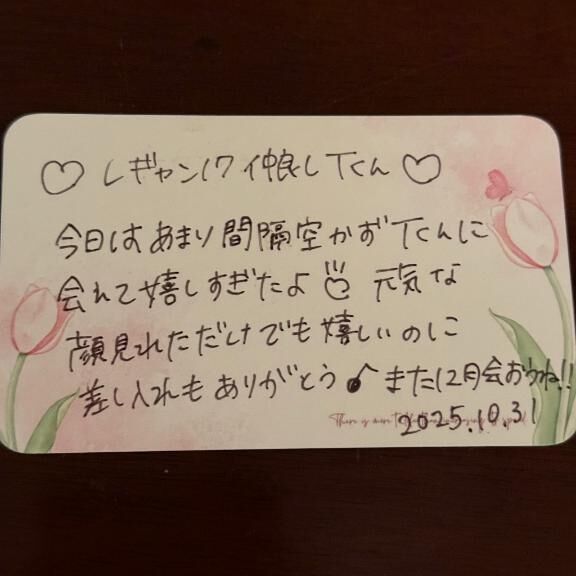 ♡ レギャン17 仲良しTくん ♡
今日はあまり間隔空かずTくんに
会れて嬉しすぎたよ 元気な
顔見れただけでも嬉しいのに
差し入れもありがとう♪また12月会おうね!!
There is more to
2025.10.31